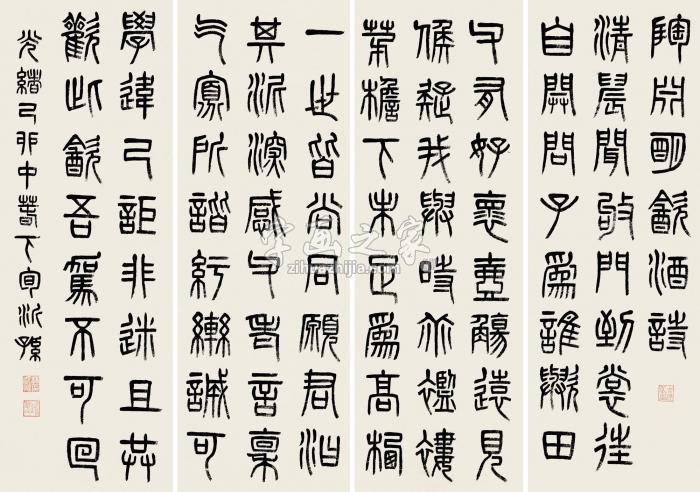 陶淵明飲酒詩
清晨聞敂門到裳往
自開問子為誰歟田
父有好懷壺觴遠見
候疑我與時乖襤褸
茅檐下未足為高栖
一世皆尚同願君汩
其泥深感父老言稟
气寡所諧紆轡誠可
學違己詎非迷且共
歡此飲吾駕不可回
光緒己卯中春下旬沂孫
字画之家
zihuazhijia.com